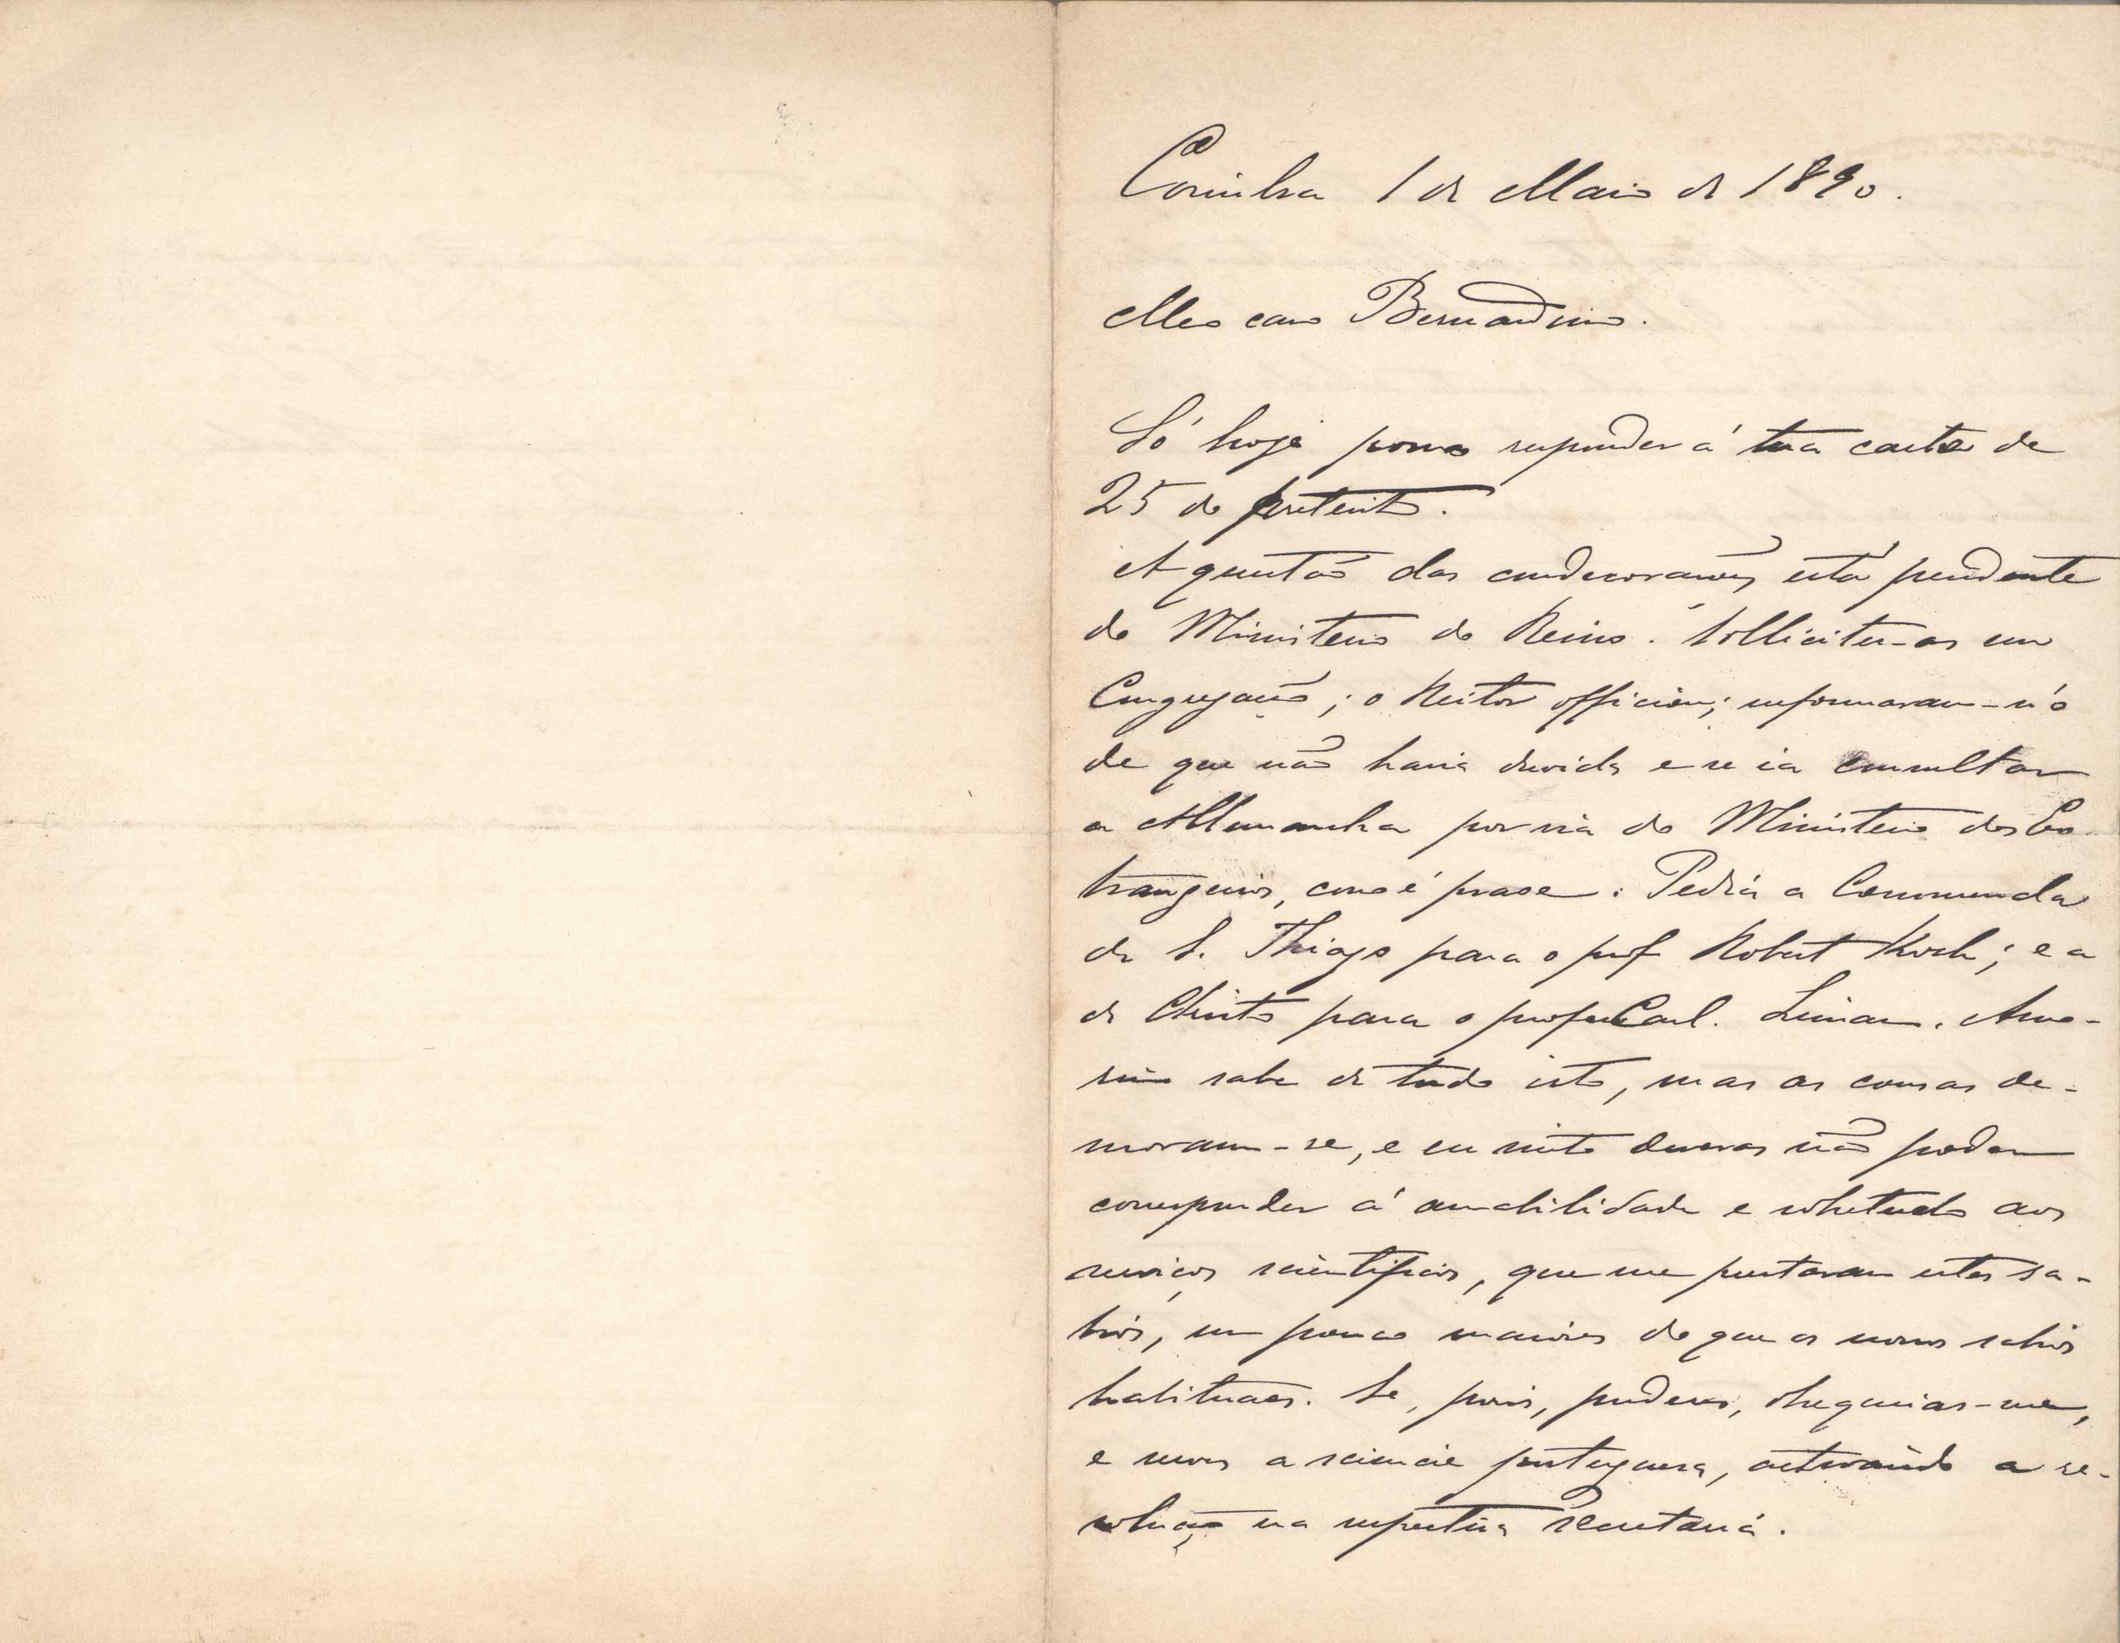 Coimbra 1 de Maio de 1890.
Meo caro Bernardino.
Só hoje posso responder á tua carta de
25 do preterito.
A questão das condecorações está pendente
do Ministerio do Reino. Sollicitei-as em
Congregação; o Reitor officiou; informaram-n'o
de que não havia duvida e se ia consultar
a Allemanha por via do Ministerio dos Es
trangeiros, como é praxe. Pedia a Commenda
de S. Thiago para o prof Robert Koch; e a
de Christo para o professor Carl. Liman. Amo-
rim sabe de tudo isto, mas as cousas de-
moram-se, e eu sinto deveras não poder
corresponder á amabilidade e sobretudo aos
serviços scientificos, que me prestaram estes sa-
bios, um pouco maiores do que os nossos sabios
habituaes. Se, pois, puderes, obsequias-me,
e a sciencia portuguesa, activando a re-
solução na respectiva secretaria.